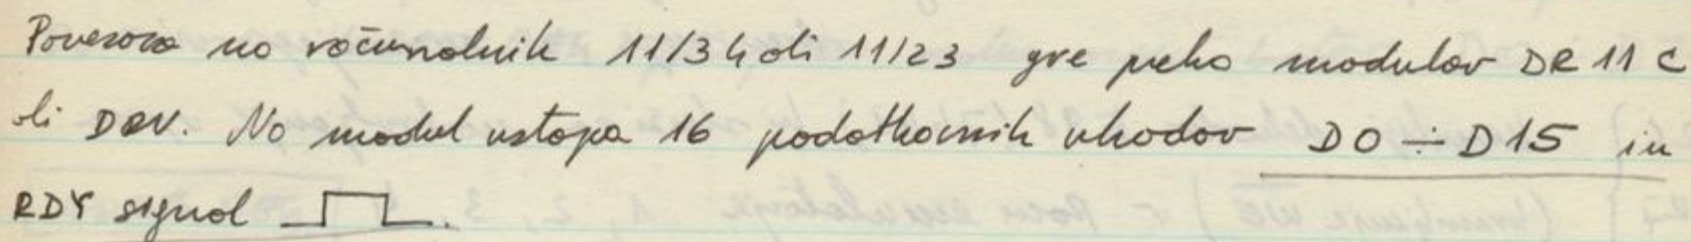 Povezava na računalnik 11/34 ali 11/23 gre preko modulov DR 11 C
ali DRV. Na modul vstopa 16 podatkovnih vhodov D0 ÷ D15 in
RDY signal